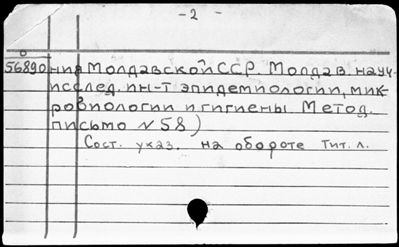 - 2 -
56890 ния Молдавской ССР Молдав. науч.-
исслед. ин-т эпидемиологии, мик-
робиологии и гигиены Метод.
письмо № 58)
Сост. указ. на обороте тит. л.